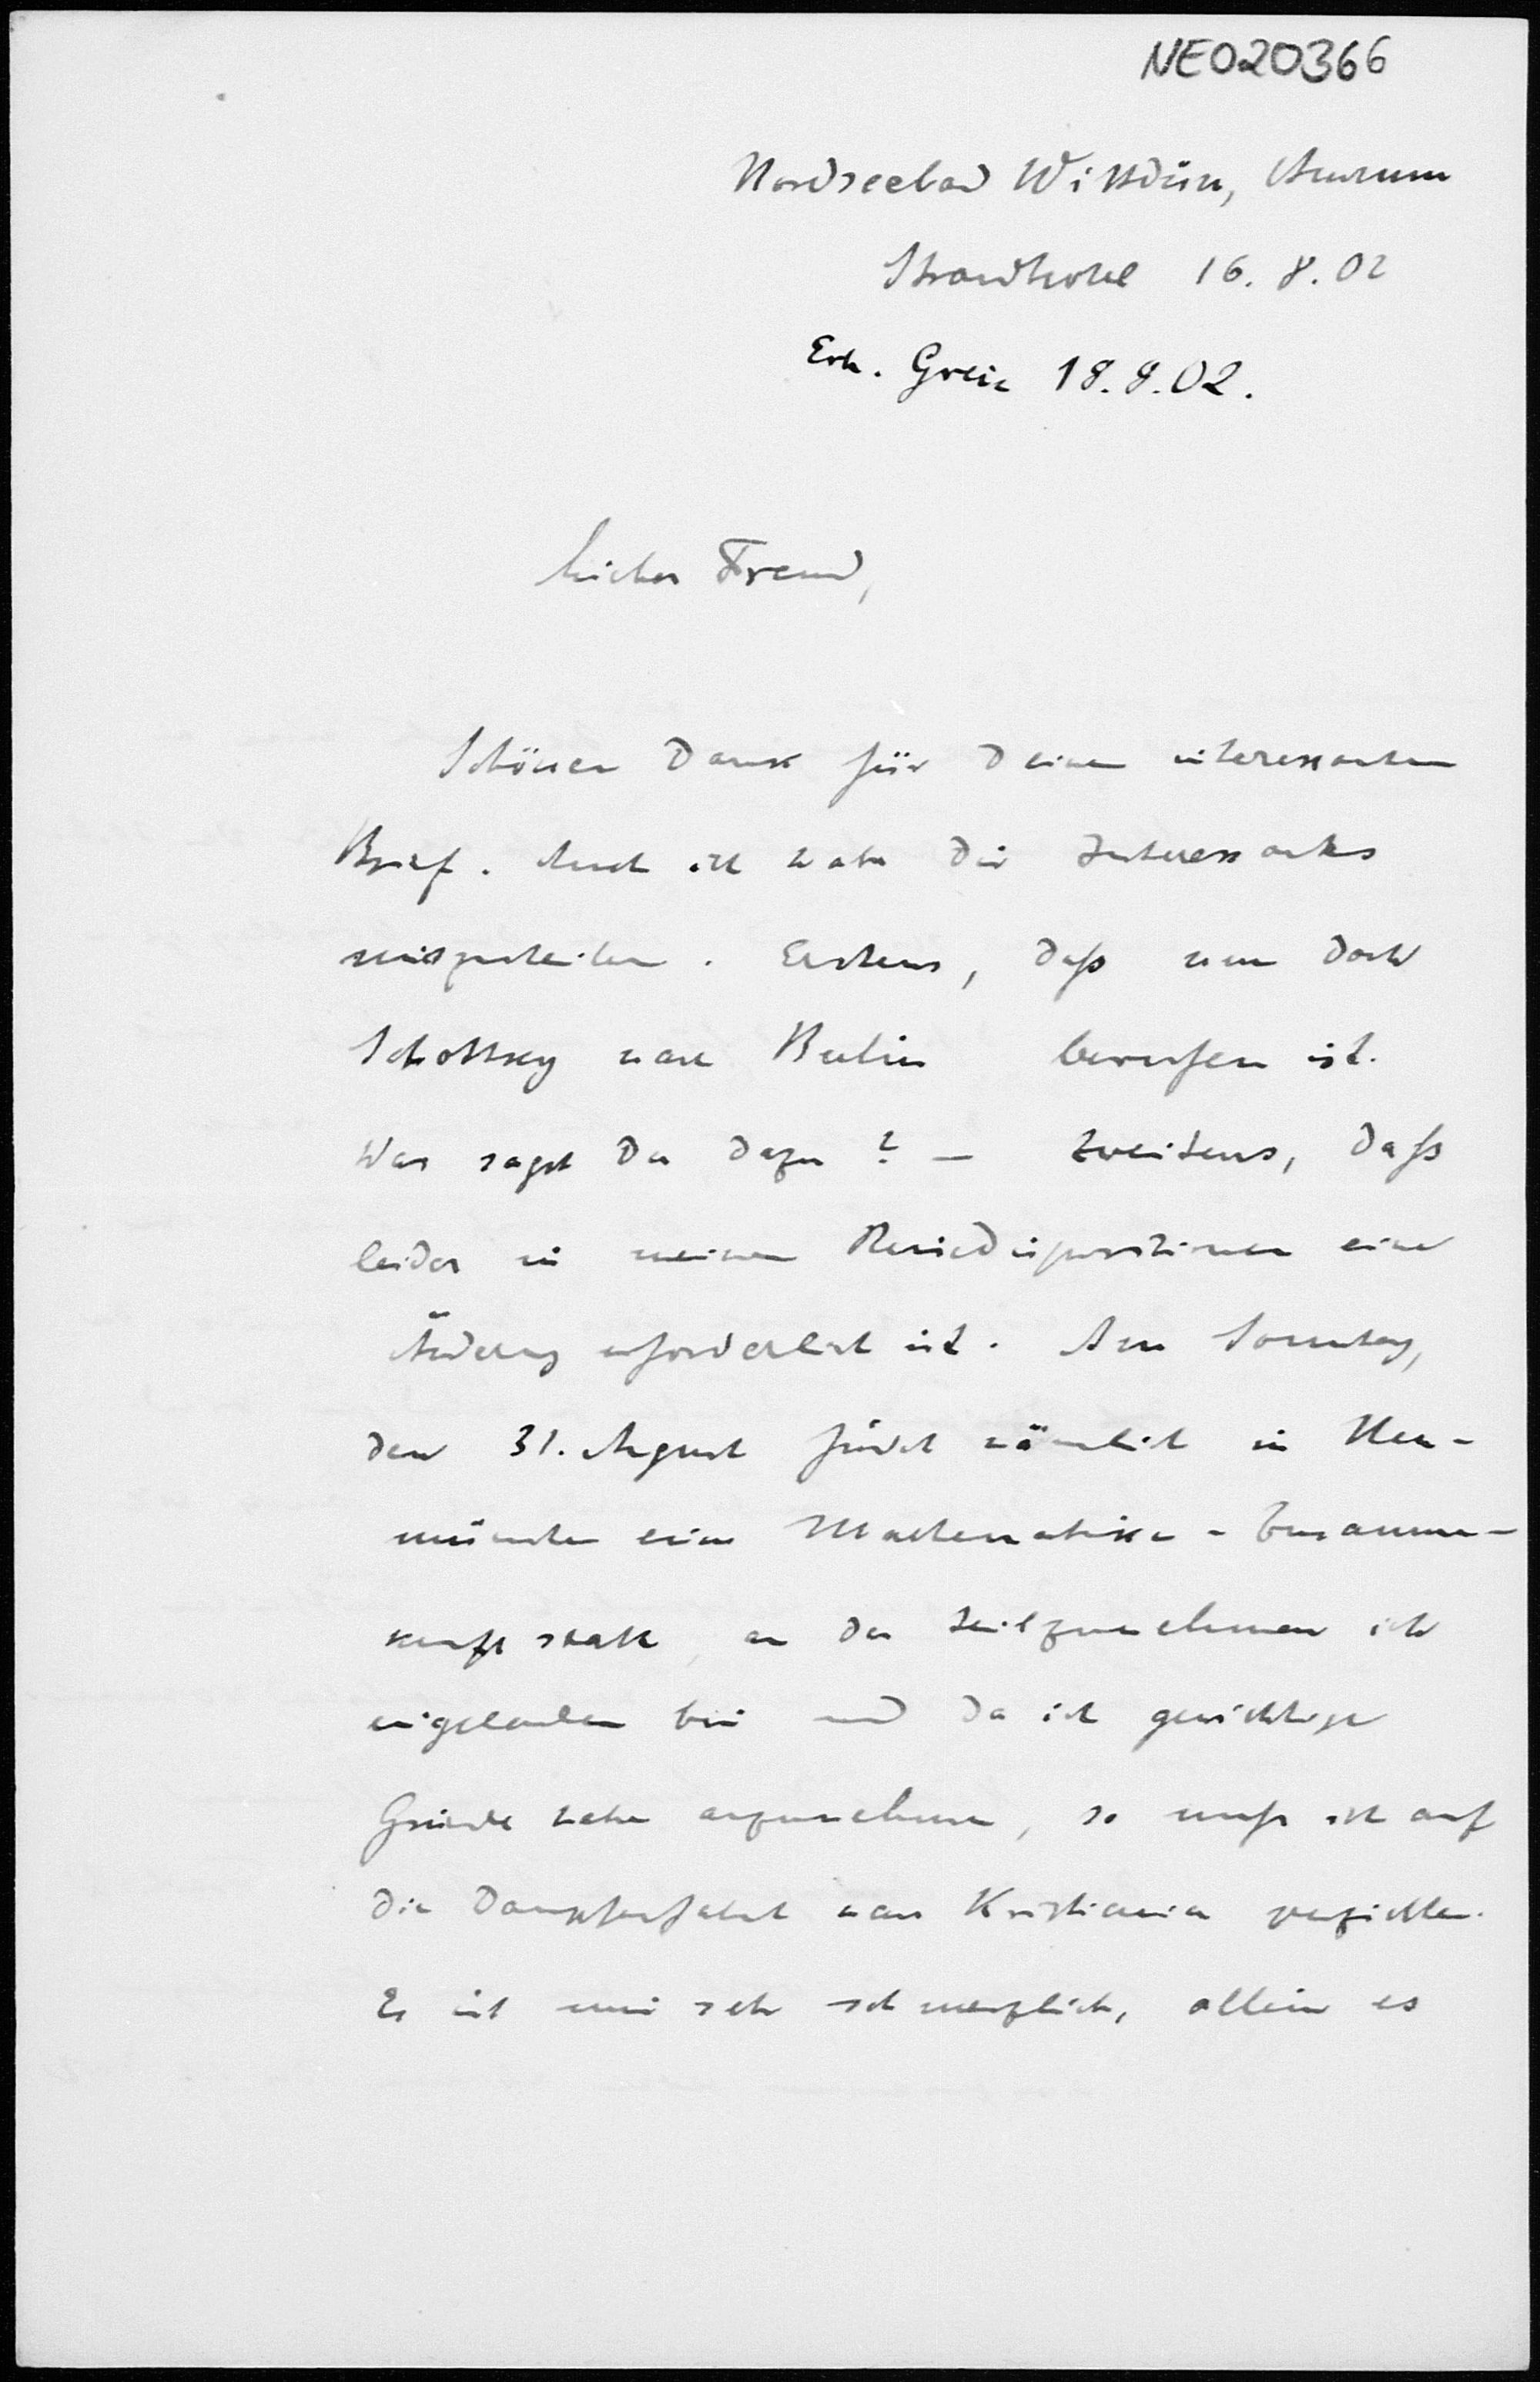 NE020366
Nordseebad Wittdün, Amrum
Strandhotel 16. 8. 02
Erh. Greiz 18. 8. 02.
Lieber Freund,
Schönen Dank für Deinen interessanten
Brief. Auch ich habe Dir Interessantes
mitzuteilen. Erstens, daß nun doch
Schottky nach Berlin berufen ist.
Was sagst Du dazu? — Zweitens, daß
leider in meinen Reisedispositionen eine
Änderung erforderlich ist. Am Sonntag,
den 31. August findet nämlich in Neu-
münster eine Mathematiker-Zusammen-
kunft statt, an der teilzunehmen ich
eingeladen bin und da ich gewichtige
Gründe habe anzunehmen, so muß ich auf
die Dampferfahrt nach Kristiania verzichten.
Es ist mir sehr schmerzlich, allein es